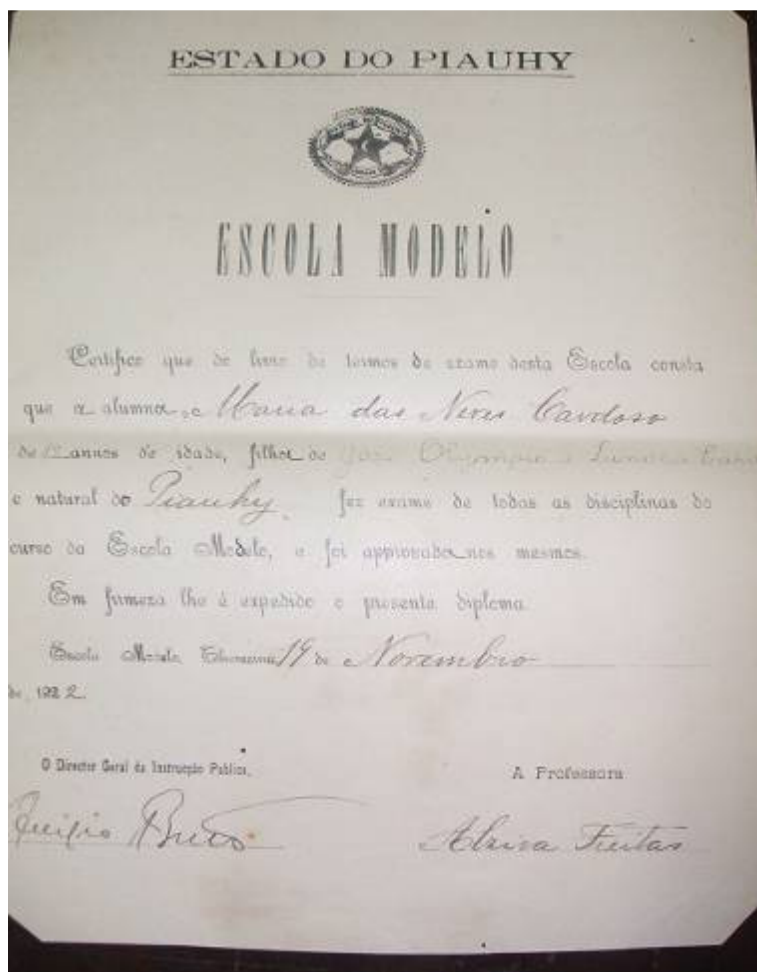 ESTADO DO PIAUHY
ESCOLA MODELO
Certifico que do livro de termos de exame desta Escola consta
que a alumna Maria das Neves Cardoso
de annos de idade, filha de Olympio
e natural do Piauhy fez exame de todas as disciplinas do
curso da Escola Modelo, e foi approvada nos mesmos.
Em firmeza lhe é expedido o presente diploma.
Escola Modelo, Therezina, 19 de Novembro
de 1922.
O Director Geral da Instrucção Publica,
A Professora
Brito
Alzira Freitas